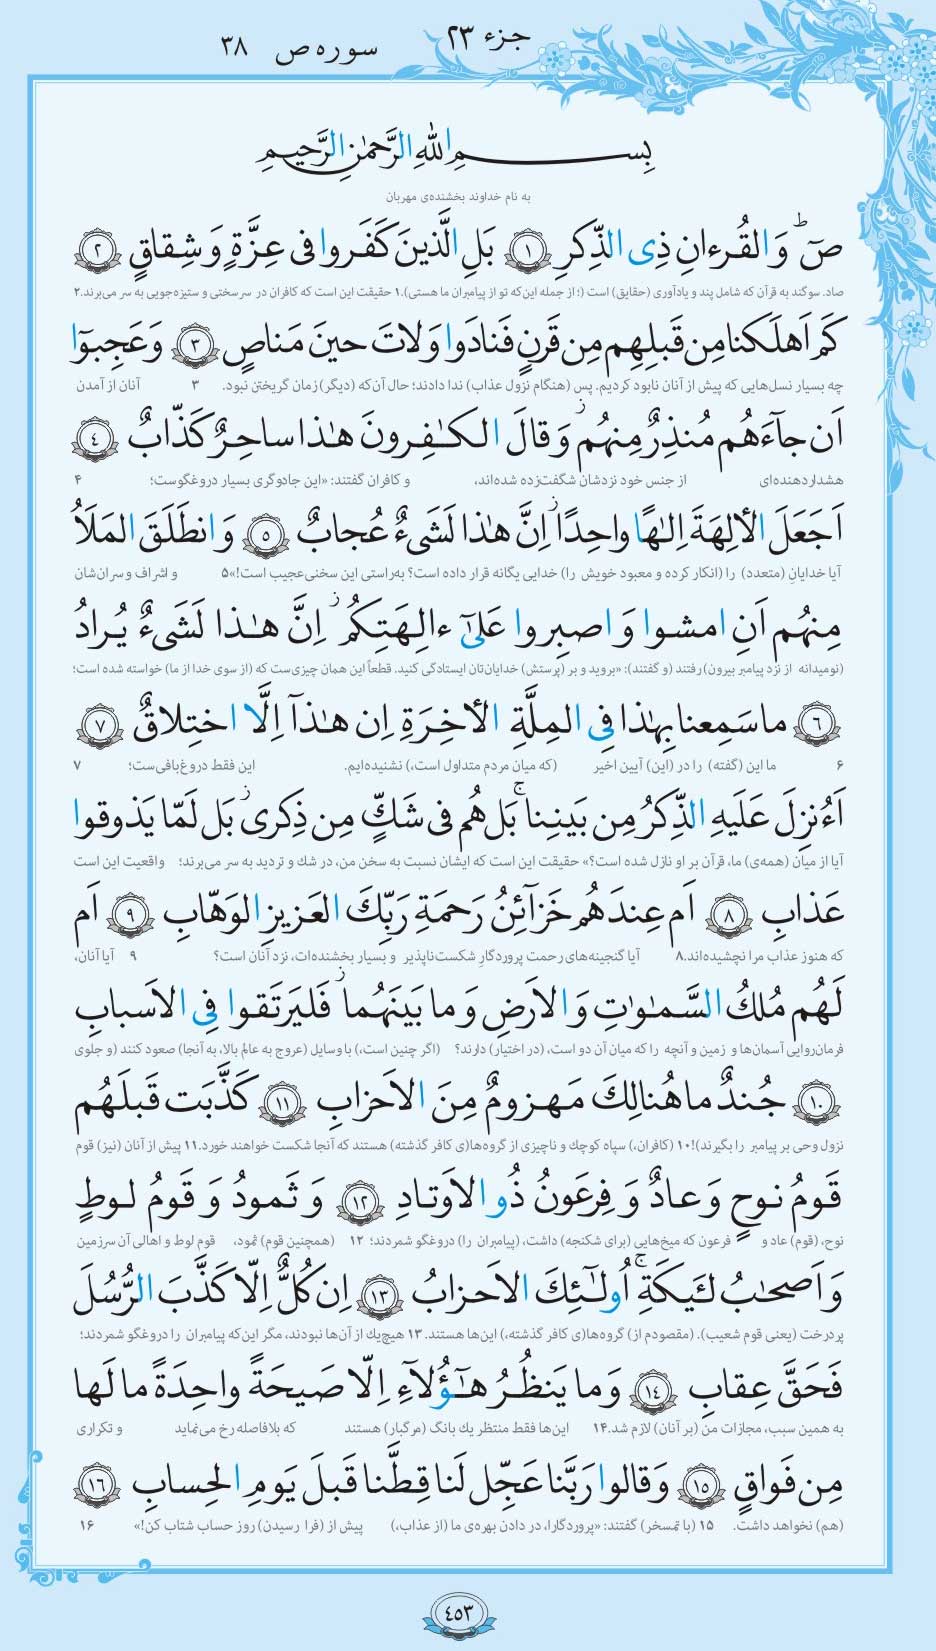 جزء ۲۳
سوره ص ۳۸
بِسمِ اللهِ الرَّحمٰنِ الرَّحيمِ
به نام خداوند بخشنده‌ی مهربان
صٓ ۚ وَالقُرءانِ ذِی الذِّكرِ ﴿١﴾ بَلِ الَّذينَ كَفَروا فی عِزَّةٍ وَشِقاقٍ ﴿٢﴾
صاد. سوگند به قرآن که شامل پند و یادآوری (حقایق) است (؛ از جمله این‌که تو از پیامبران ما هستی).۱ حقیقت این است که کافران در سرسختی و ستیزه‌جویی به سر می‌برند.۲
كَم اَهلَكنا مِن قَبلِهِم مِن قَرنٍ فَنادَوا وَلاتَ حينَ مَناصٍ ﴿٣﴾ وَعَجِبوٓا
چه بسیار نسل‌هایی که پیش از آنان نابود کردیم. پس (هنگام نزول عذاب) ندا دادند؛ حال آن‌که (دیگر) زمان گریختن نبود. ۳ آنان از آمدن
اَن جآءَهُم مُنذِرٌ مِنهُم ۖ وَقالَ الكٰفِرونَ هٰذا ساحِرٌ كَذّابٌ ﴿٤﴾
هشداردهنده‌ای از جنس خود نزدشان شگفت‌زده شده‌اند، و کافران گفتند: «این جادوگری بسیار دروغگوست؛ ۴
اَجَعَلَ الءالِهَةَ اِلٰهًا واحِدًا ۖ اِنَّ هٰذا لَشَیءٌ عُجابٌ ﴿٥﴾ وَانطَلَقَ المَلَاُ
آیا خدایانِ (متعدد) را (انکار کرده و معبود خویش را) خدایی یگانه قرار داده است؟ به‌راستی این سخنی عجیب است!»۵ و اشراف و سران‌شان
مِنهُم اَنِ امشوا وَاصبِروا عَلىٰٓ ءالِهَتِكُم ۖ اِنَّ هٰذا لَشَیءٌ يُرادُ
(نومیدانه از نزد پیامبر بیرون) رفتند (و گفتند): «بروید و بر (پرستش) خدایان‌تان ایستادگی کنید. قطعاً این همان چیزی‌ست که (از سوی خدا از ما) خواسته شده است؛
﴿٦﴾ ما سَمِعنا بِهٰذا فِی المِلَّةِ الءاخِرَةِ اِن هٰذآ اِلَّا اختِلاقٌ ﴿٧﴾
۶ ما این (گفته) را در (این) آیین اخیر (که میان مردم متداول است،) نشنیده‌ایم. این فقط دروغ‌بافی‌ست؛ ۷
اَءُنزِلَ عَلَيهِ الذِّكرُ مِن بَينِنا ۚ بَل هُم فی شَكٍّ مِن ذِكری ۖ بَل لَمّا يَذوقوا
آیا از میان (همه‌ی) ما، قرآن بر او نازل شده است؟» حقیقت این است که ایشان نسبت به سخن من، در شك و تردید به سر می‌برند؛ واقعیت این است
عَذابِ ﴿٨﴾ اَم عِندَهُم خَزآئِنُ رَحمَةِ رَبِّكَ العَزيزِ الوَهّابِ ﴿٩﴾ اَم
که هنوز عذاب مرا نچشیده‌اند.۸ آیا گنجینه‌های رحمت پروردگارِ شکست‌ناپذیر و بسیار بخشنده‌ات، نزد آنان است؟ ۹ آیا آنان،
لَهُم مُلكُ السَّمٰوٰتِ وَالاَرضِ وَما بَينَهُما ۖ فَليَرتَقوا فِی الاَسبابِ
فرمان‌روایی آسمان‌ها و زمین و آنچه را که میان آن دو است، (در اختیار) دارند؟ (اگر چنین است،) با وسایل (عروج به عالم بالا، به آنجا) صعود کنند (و جلوی
﴿١٠﴾ جُندٌ ما هُنالِكَ مَهزومٌ مِنَ الاَحزابِ ﴿١١﴾ كَذَّبَت قَبلَهُم
نزول وحی بر پیامبر را بگیرند)!۱۰ (کافران،) سپاه کوچك و ناچیزی از گروه‌ها(ی کافر گذشته) هستند که آنجا شکست خواهند خورد.۱۱ پیش از آنان (نیز) قوم
قَومُ نوحٍ وَعادٌ وَفِرعَونُ ذُو الاَوتادِ ﴿١٢﴾ وَثَمودُ وَقَومُ لوطٍ
نوح، (قوم) عاد و فرعون که میخ‌هایی (برای شکنجه) داشت، (پیامبران را) دروغگو شمردند؛ ۱۲ (همچنین قوم) ثمود، قوم لوط و اهالی آن سرزمین
وَاَصحٰبُ لئَيكَةِ ۚ اُولٰٓئِكَ الاَحزابُ ﴿١٣﴾ اِن كُلٌّ اِلّا كَذَّبَ الرُّسُلَ
پردرخت (یعنی قوم شعیب). (مقصودم از) گروه‌ها(ی کافر گذشته،) این‌ها هستند. ۱۳ هیچ‌یك از آن‌ها نبودند، مگر این‌که پیامبران را دروغگو شمردند؛
فَحَقَّ عِقابِ ﴿١٤﴾ وَما يَنظُرُ هٰٓؤُلآءِ اِلّا صَيحَةً واحِدَةً ما لَها
به همین سبب، مجازات من (بر آنان) لازم شد.۱۴ این‌ها فقط منتظر یك بانگ (مرگبار) هستند که بلافاصله رخ می‌نماید و تکراری
مِن فَواقٍ ﴿١٥﴾ وَقالوا رَبَّنا عَجِّل لَنا قِطَّنا قَبلَ يَومِ الحِسابِ ﴿١٦﴾
(هم) نخواهد داشت. ۱۵ (با تمسخر) گفتند: «پروردگارا، در دادن بهره‌ی ما (از عذاب،) پیش از (فرا رسیدن) روز حساب شتاب کن!» ۱۶
٤٥٣